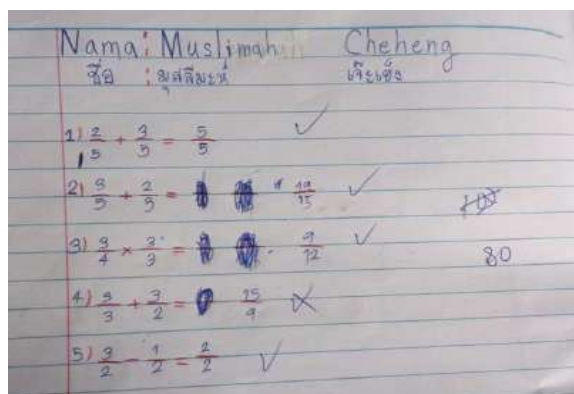 Nama: Muslimah Cheheng
ชื่อ : มุสลีมะห์ เจ๊ะเฮ็ง
1) 2/5 + 3/5 = 5/5 ✓
2) 3/5 + 2/3 = 19/15 ✓
3) 3/4 × 3/3 = 9/12 ✓
80
4) 5/3 + 3/2 = 15/9 ✗
5) 3/2 - 1/2 = 2/2 ✓